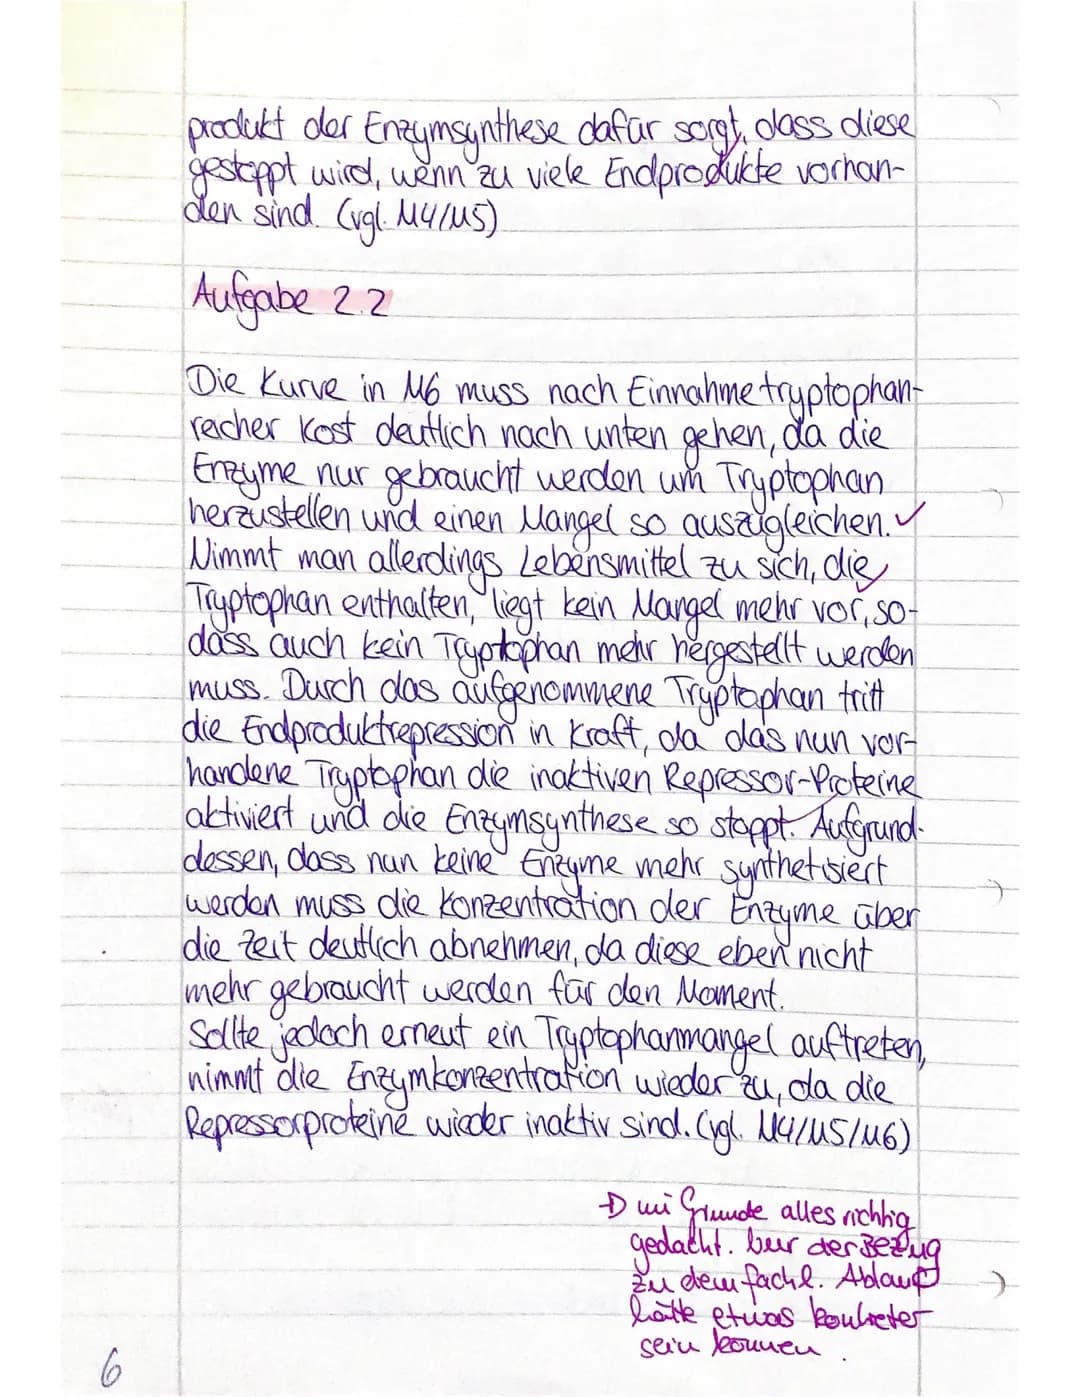 produkt der Enzymsynthese dafür sorgt, dass diese
gestoppt wird, wenn zu viele Endprodukte vorhan-
den sind. (vgl. M4/M5)
Aufgabe 2.2
Die Kurve in M6 muss nach Einnahme tryptophan-
reicher Kost deutlich nach unten gehen, da die
Enzyme nur gebraucht werden um Tryptophan
herzustellen und einen Mangel so auszugleichen. ✓
Nimmt man allerdings Lebensmittel zu sich, die
Tryptophan enthalten, liegt kein Mangel mehr vor, so-
dass auch kein Tryptophan mehr hergestellt werden
muss. Durch das aufgenommene Tryptophan tritt
die Endproduktrepression in Kraft, da das nun vor-
handene Tryptophan die inaktiven Repressor-Proteine
aktiviert und die Enzymsynthese so stoppt. Aufgrund-
dessen, dass nun keine Enzyme mehr synthetisiert
werden muss die Konzentration der Enzyme über
die Zeit deutlich abnehmen, da diese eben nicht
mehr gebraucht werden für den Moment.
Sollte jedoch erneut ein Tryptophanmangel auftreten,
nimmt die Enzymkonzentration wieder zu, da die
Repressorproteine wieder inaktiv sind. (vgl. M4/M5/M6)
→ im Grunde alles richtig
gedacht. Nur der Bezug
zu dem fachl. Ablauf
hätte etwas konkreter
sein können.
6